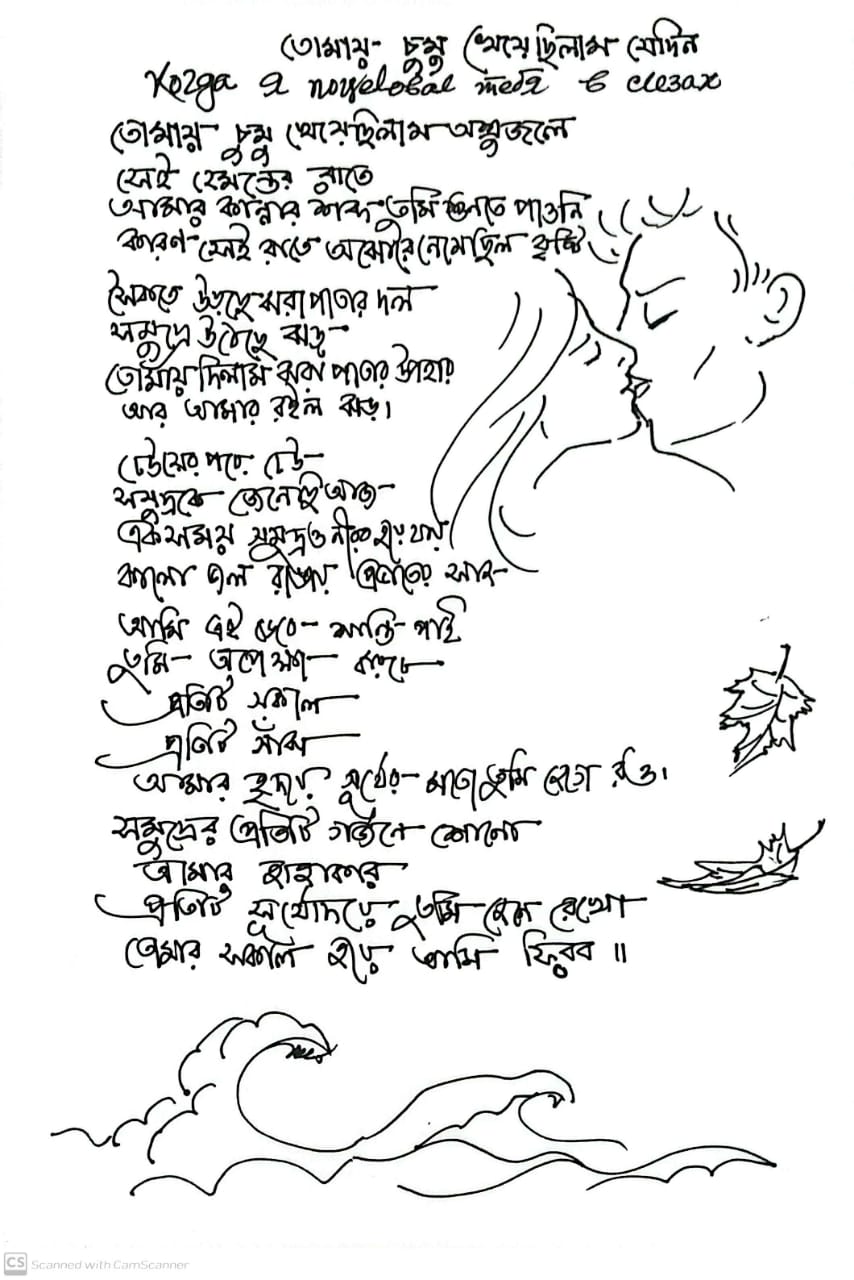 তোমায় চুমু খেয়েছিলাম যেদিন
Kozga a noyelobal meda b clezax
তোমায় চুমু খেয়েছিলাম অশ্রুজলে
সেই হেমন্তের রাতে
আমার কান্নার শব্দ তুমি শুনতে পাওনি
কারণ সেই রাতে অঝোরে নেমেছিল বৃষ্টি
সৈকতে উড়ছে ঝরা পাতার দল
সমুদ্রে উঠেছে ঝড়
তোমায় দিলাম ঝরা পাতার উপহার
আর আমার রইল ঝড়।
ঢেউয়ের পরে ঢেউ
সমুদ্রকে জেনেছি আজ
এক সময় সমুদ্রও নীরব হয়ে যায়
কালো জল রাঙায় প্রভাতের সাজ
আমি এই ভেবে শান্তি পাই
তুমি অপেক্ষা করছো
প্রতিটি সকাল
প্রতিটি সাঁঝ
আমার হৃদয়ে সূর্যের মতো তুমি জেগে রও।
সমুদ্রের প্রতিটি গর্জনে শোনো
আমার হাহাকার
প্রতিটি সূর্যোদয়ে তুমি রেখো
তোমার সকাল হয়ে আমি ফিরব ॥
CS Scanned with CamScanner